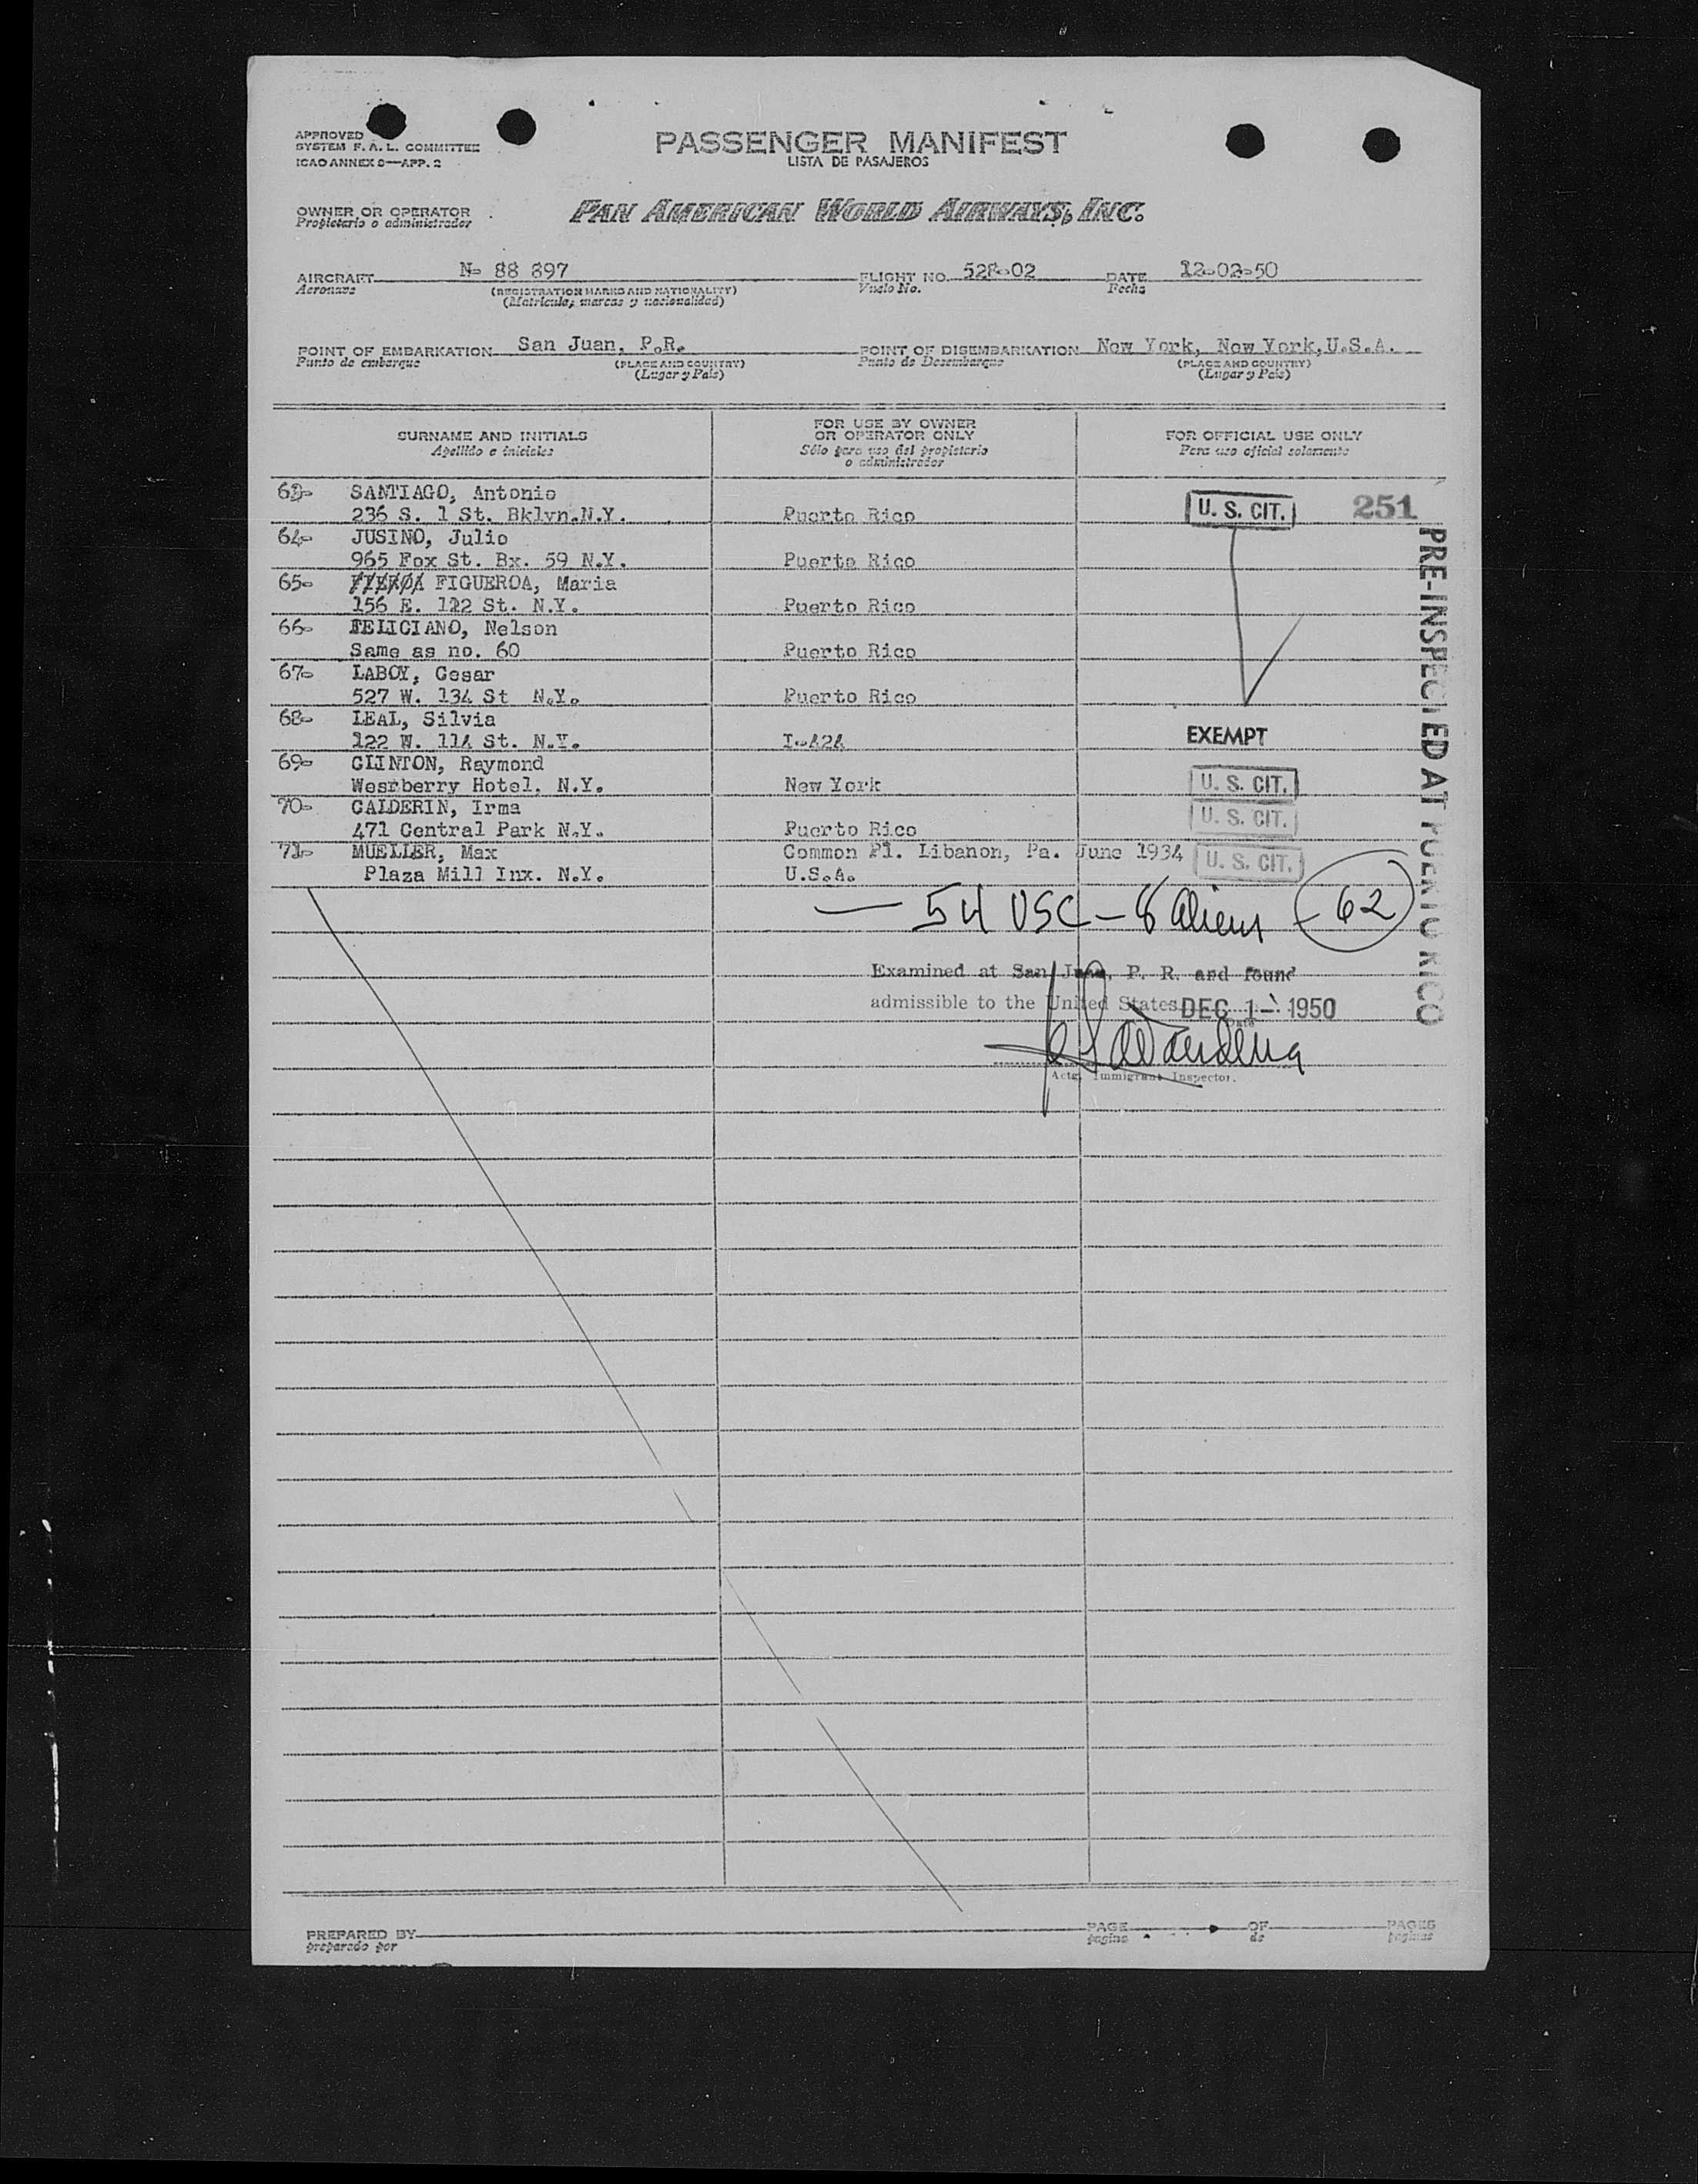 APPROVED
SYSTEM F. A. L. COMMITTEE
ICAO ANNEX 9—APP. 2
PASSENGER MANIFEST
LISTA DE PASAJEROS
OWNER OR OPERATOR
Propietario o administrador
PAN AMERICAN WORLD AIRWAYS, INC.
AIRCRAFT N- 88 897 FLIGHT NO. 528-02 DATE 12-02-50
Aeronave (REGISTRATION MARKS AND NATIONALITY) Vuelo No. Fecha
(Matrícula, marcas y nacionalidad)
POINT OF EMBARKATION San Juan, P.R. POINT OF DISEMBARKATION New York, New York,U.S.A.
Punto de embarque (PLACE AND COUNTRY) Punto de Desembarque (PLACE AND COUNTRY)
(Lugar y País) (Lugar y País)
SURNAME AND INITIALS
Apellido e iniciales
FOR USE BY OWNER
OR OPERATOR ONLY
Sólo para uso del propietario
o administrador
FOR OFFICIAL USE ONLY
Para uso oficial solamente
63- SANTIAGO, Antonio
236 S. 1 St. Bklyn.N.Y. Puerto Rico U. S. CIT. 251
64- JUSINO, Julio
965 Fox St. Bx. 59 N.Y. Puerto Rico
65- FIGUEROA, Maria
156 E. 122 St. N.Y. Puerto Rico
66- FELICIANO, Nelson
Same as no. 60 Puerto Rico
67- LABOY, Cesar
527 W. 134 St N.Y. Puerto Rico
68- LEAL, Silvia
122 W. 114 St. N.Y. I-424 EXEMPT
69- CLINTON, Raymond
Wesrberry Hotel. N.Y. New York U. S. CIT.
70- CALDERIN, Irma U. S. CIT.
471 Central Park N.Y. Puerto Rico
71- MUELLER, Max Common Pl. Libanon, Pa. June 1934 U. S. CIT.
Plaza Mill Inx. N.Y. U.S.A.
— 54 USC - 8 Aliens - 62
PRE-INSPECTED AT PUERTO RICO
Examined at San Juan, P. R. and found
admissible to the United States DEC 1 - 1950
Date
Actg. Immigrant Inspector.
PREPARED BY PAGE OF PAGES
preparado por página de páginas